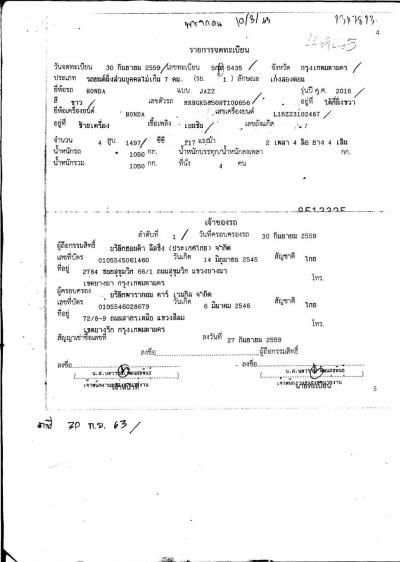 10/3/63
4
รายการจดทะเบียน
วันจดทะเบียน 30 กันยายน 2559 เลขทะเบียน 5 5435 จังหวัด กรุงเทพมหานคร
ประเภท รถยนต์นั่งส่วนบุคคลไม่เกิน 7 คน (รย. 1 ) ลักษณะ เก๋งสองตอน
ยี่ห้อรถ HONDA แบบ JAZZ รุ่นปี ค.ศ. 2016
สี ขาว เลขตัวรถ อยู่ที่
ยี่ห้อเครื่องยนต์ HONDA เลขเครื่องยนต์ L15Z23102467
อยู่ที่ ซ้ายเครื่อง เชื้อเพลิง เบนซิน เลขถังแก๊ส
จำนวน 4 สูบ 1497 ซีซี 117 แรงม้า 2 เพลา 4 ล้อ ยาง 4 เส้น
น้ำหนักรถ 1050 กก. น้ำหนักบรรทุก/น้ำหนักลงเพลา กก.
น้ำหนักรวม 1050 กก. ที่นั่ง 4 คน
เจ้าของรถ
ลำดับที่ 1 / วันที่ครอบครองรถ 30 กันยายน 2559
ผู้ถือกรรมสิทธิ์ บริษัทฮอนด้า ลีสซิ่ง (ประเทศไทย) จำกัด
เลขที่บัตร 0105545061460 วันเกิด 14 มิถุนายน 2545 สัญชาติ ไทย
ที่อยู่ 2784 ซอยสุขุมวิท 66/1 ถนนสุขุมวิท แขวงบางนา
เขตบางนา กรุงเทพมหานคร โทร.
ผู้ครอบครอง บริษัทพารากอน คาร์ เรนทัล จำกัด
เลขที่บัตร 0105546028679 วันเกิด 6 มีนาคม 2546 สัญชาติ ไทย
ที่อยู่ 72/8-9 ถนนสาทรเหนือ แขวงสีลม
เขตบางรัก กรุงเทพมหานคร โทร.
สัญญาเช่าซื้อเลขที่ ลงวันที่ 27 กันยายน 2559
ลงชื่อ ผู้ถือกรรมสิทธิ์
ลงชื่อ ลงชื่อ
เจ้าหน้าที่ นายทะเบียน
5
30 ก.ย. 63/